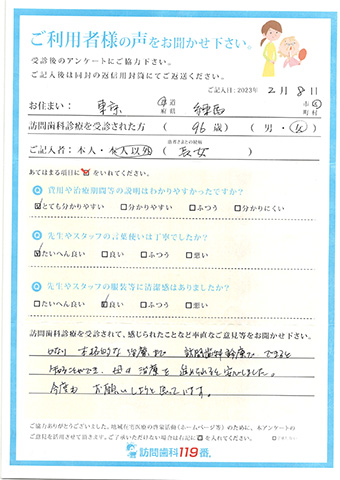 ご利用者様の声をお聞かせ下さい。
受診後のアンケートにご協力下さい。
ご記入後は同封の返信用封筒にてご返送ください。
ご記入日:2023年 2月 8日
お住まい: 東京 都道府県 練馬 市区町村
訪問歯科診療を受診された方 ( 96 歳) ( 男・女 )
ご記入者:本人・本人以外 ( 長女 )
あてはまる項目に を入れてください。
Q 費用や治療期間等の説明はわかりやすかったですか?
とても分かりやすい 分かりやすい ふつう 分かりにくい
Q 先生やスタッフの言葉使いは丁寧でしたか?
たいへん良い 良い ふつう 悪い
Q 先生やスタッフの服装等に清潔感はありましたか?
たいへん良い 良い ふつう 悪い
訪問歯科診療を受診されて、感じられたことなど率直なご意見等をお聞かせ下さい。
かなり 本格的な 治療が 訪問歯科診療で できると
母の 治療を 進められると 安心しました。
今後も お願いしたいと思っています。
ご協力ありがとうございました。地域在宅医療の啓蒙活動(ホームページ等)のために、本アンケートの
ご意見を活用させて頂きます。ご了承いただけない場合は右記に を入れてください。
訪問歯科119番